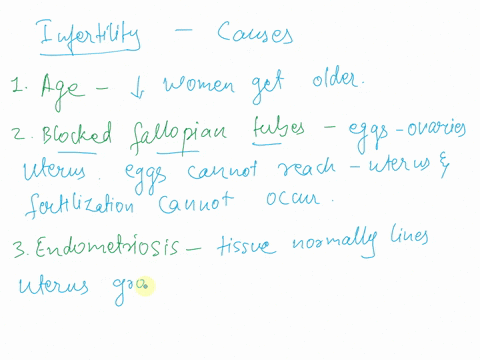 Infertility - Causes
1. Age - ↓ women get older.
2. Blocked fallopian tubes - eggs - ovaries
uterus. eggs cannot reach - uterus &
fertilization cannot occur.
3. Endometriosis - tissue normally lines
uterus gro